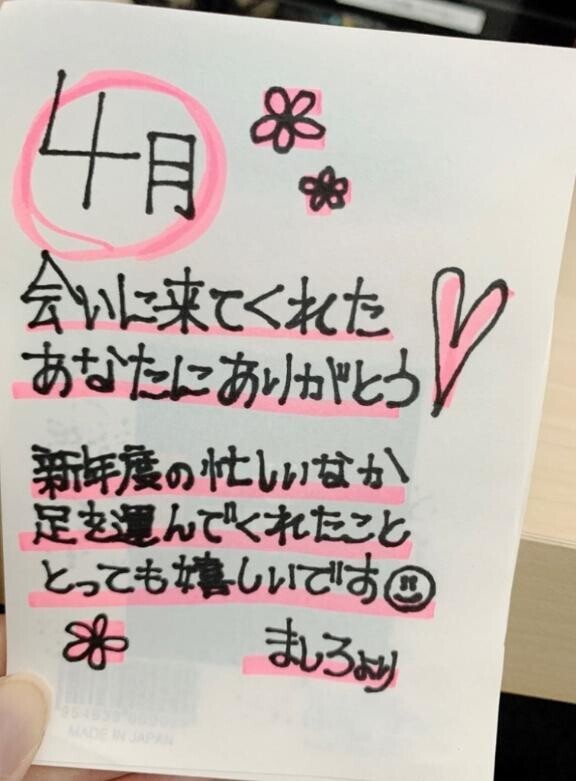 4月
会いに来てくれた
あなたにありがとう
新年度の忙しいなか
足を運んでくれたこと
とっても嬉しいです
ましろより
MADE IN JAPAN